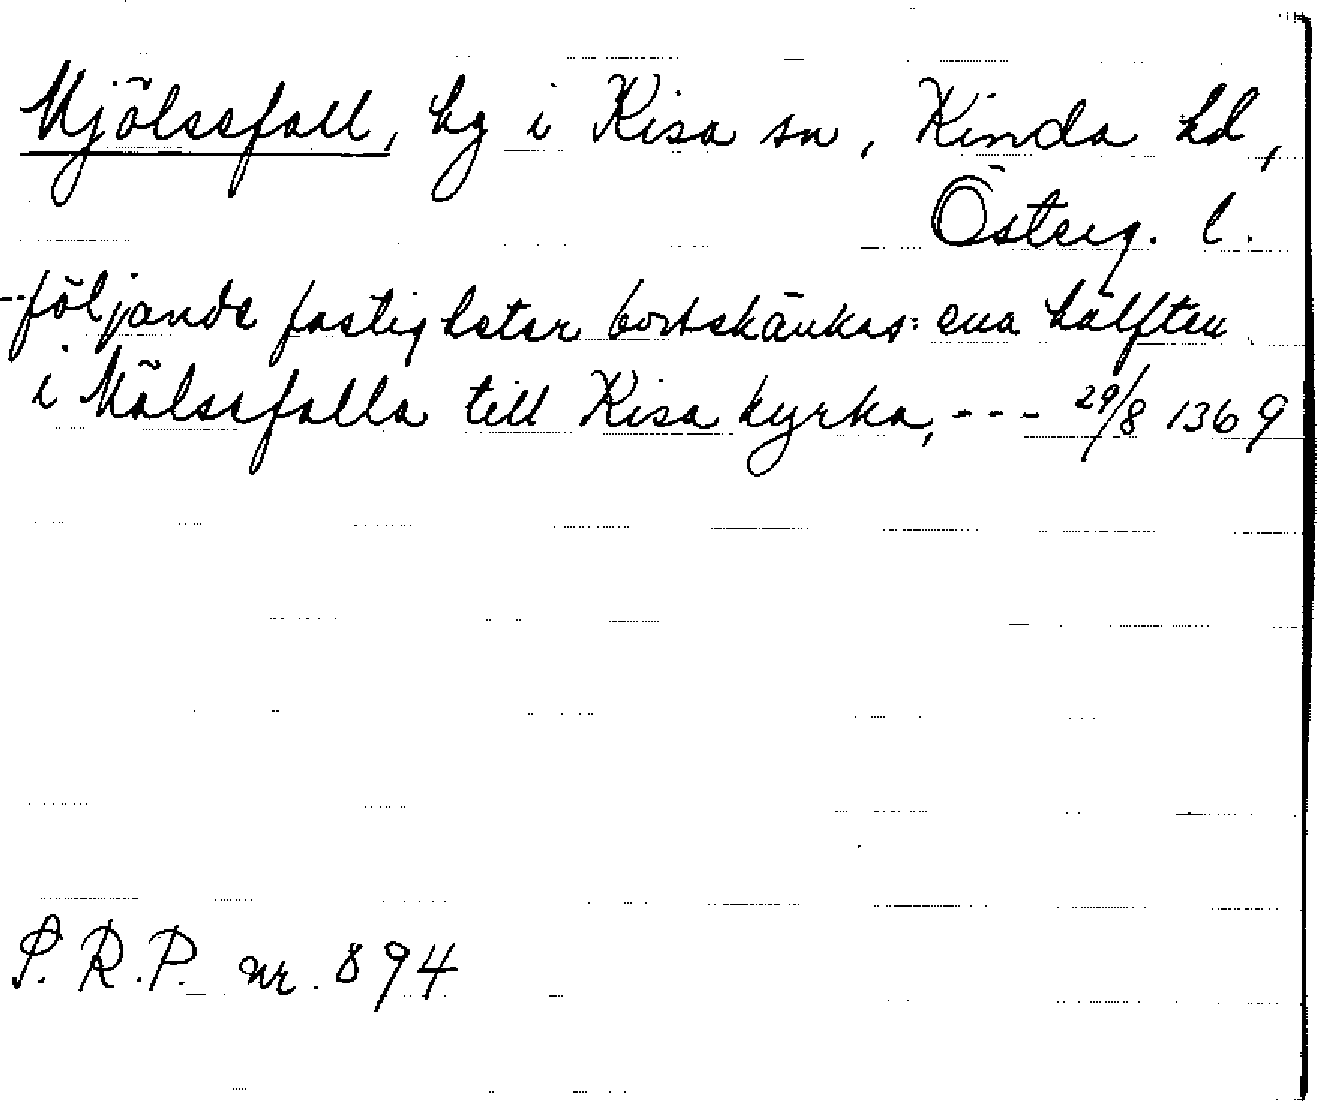 Mjölsefall, hg i Kisa sn, Kinda hd,
Österg. l.
--följande fastigheter bortskänkes: ena hälften
i Mölsefalla till Kisa kyrka, --- 29/8 1369
S.R.P. nr. 894